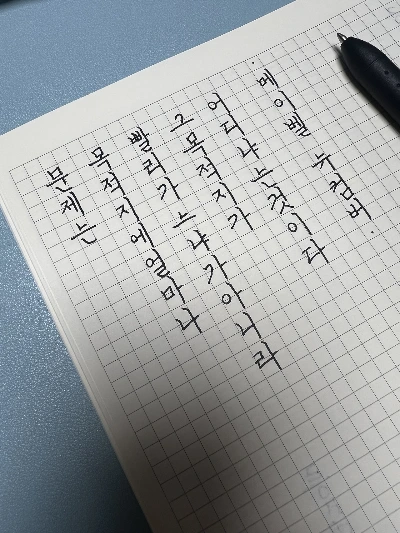 문제는
목적지에 얼마나
빨리 가느냐가 아니라
그 목적지가
어디냐는 것이다
메이벨 뉴컴버